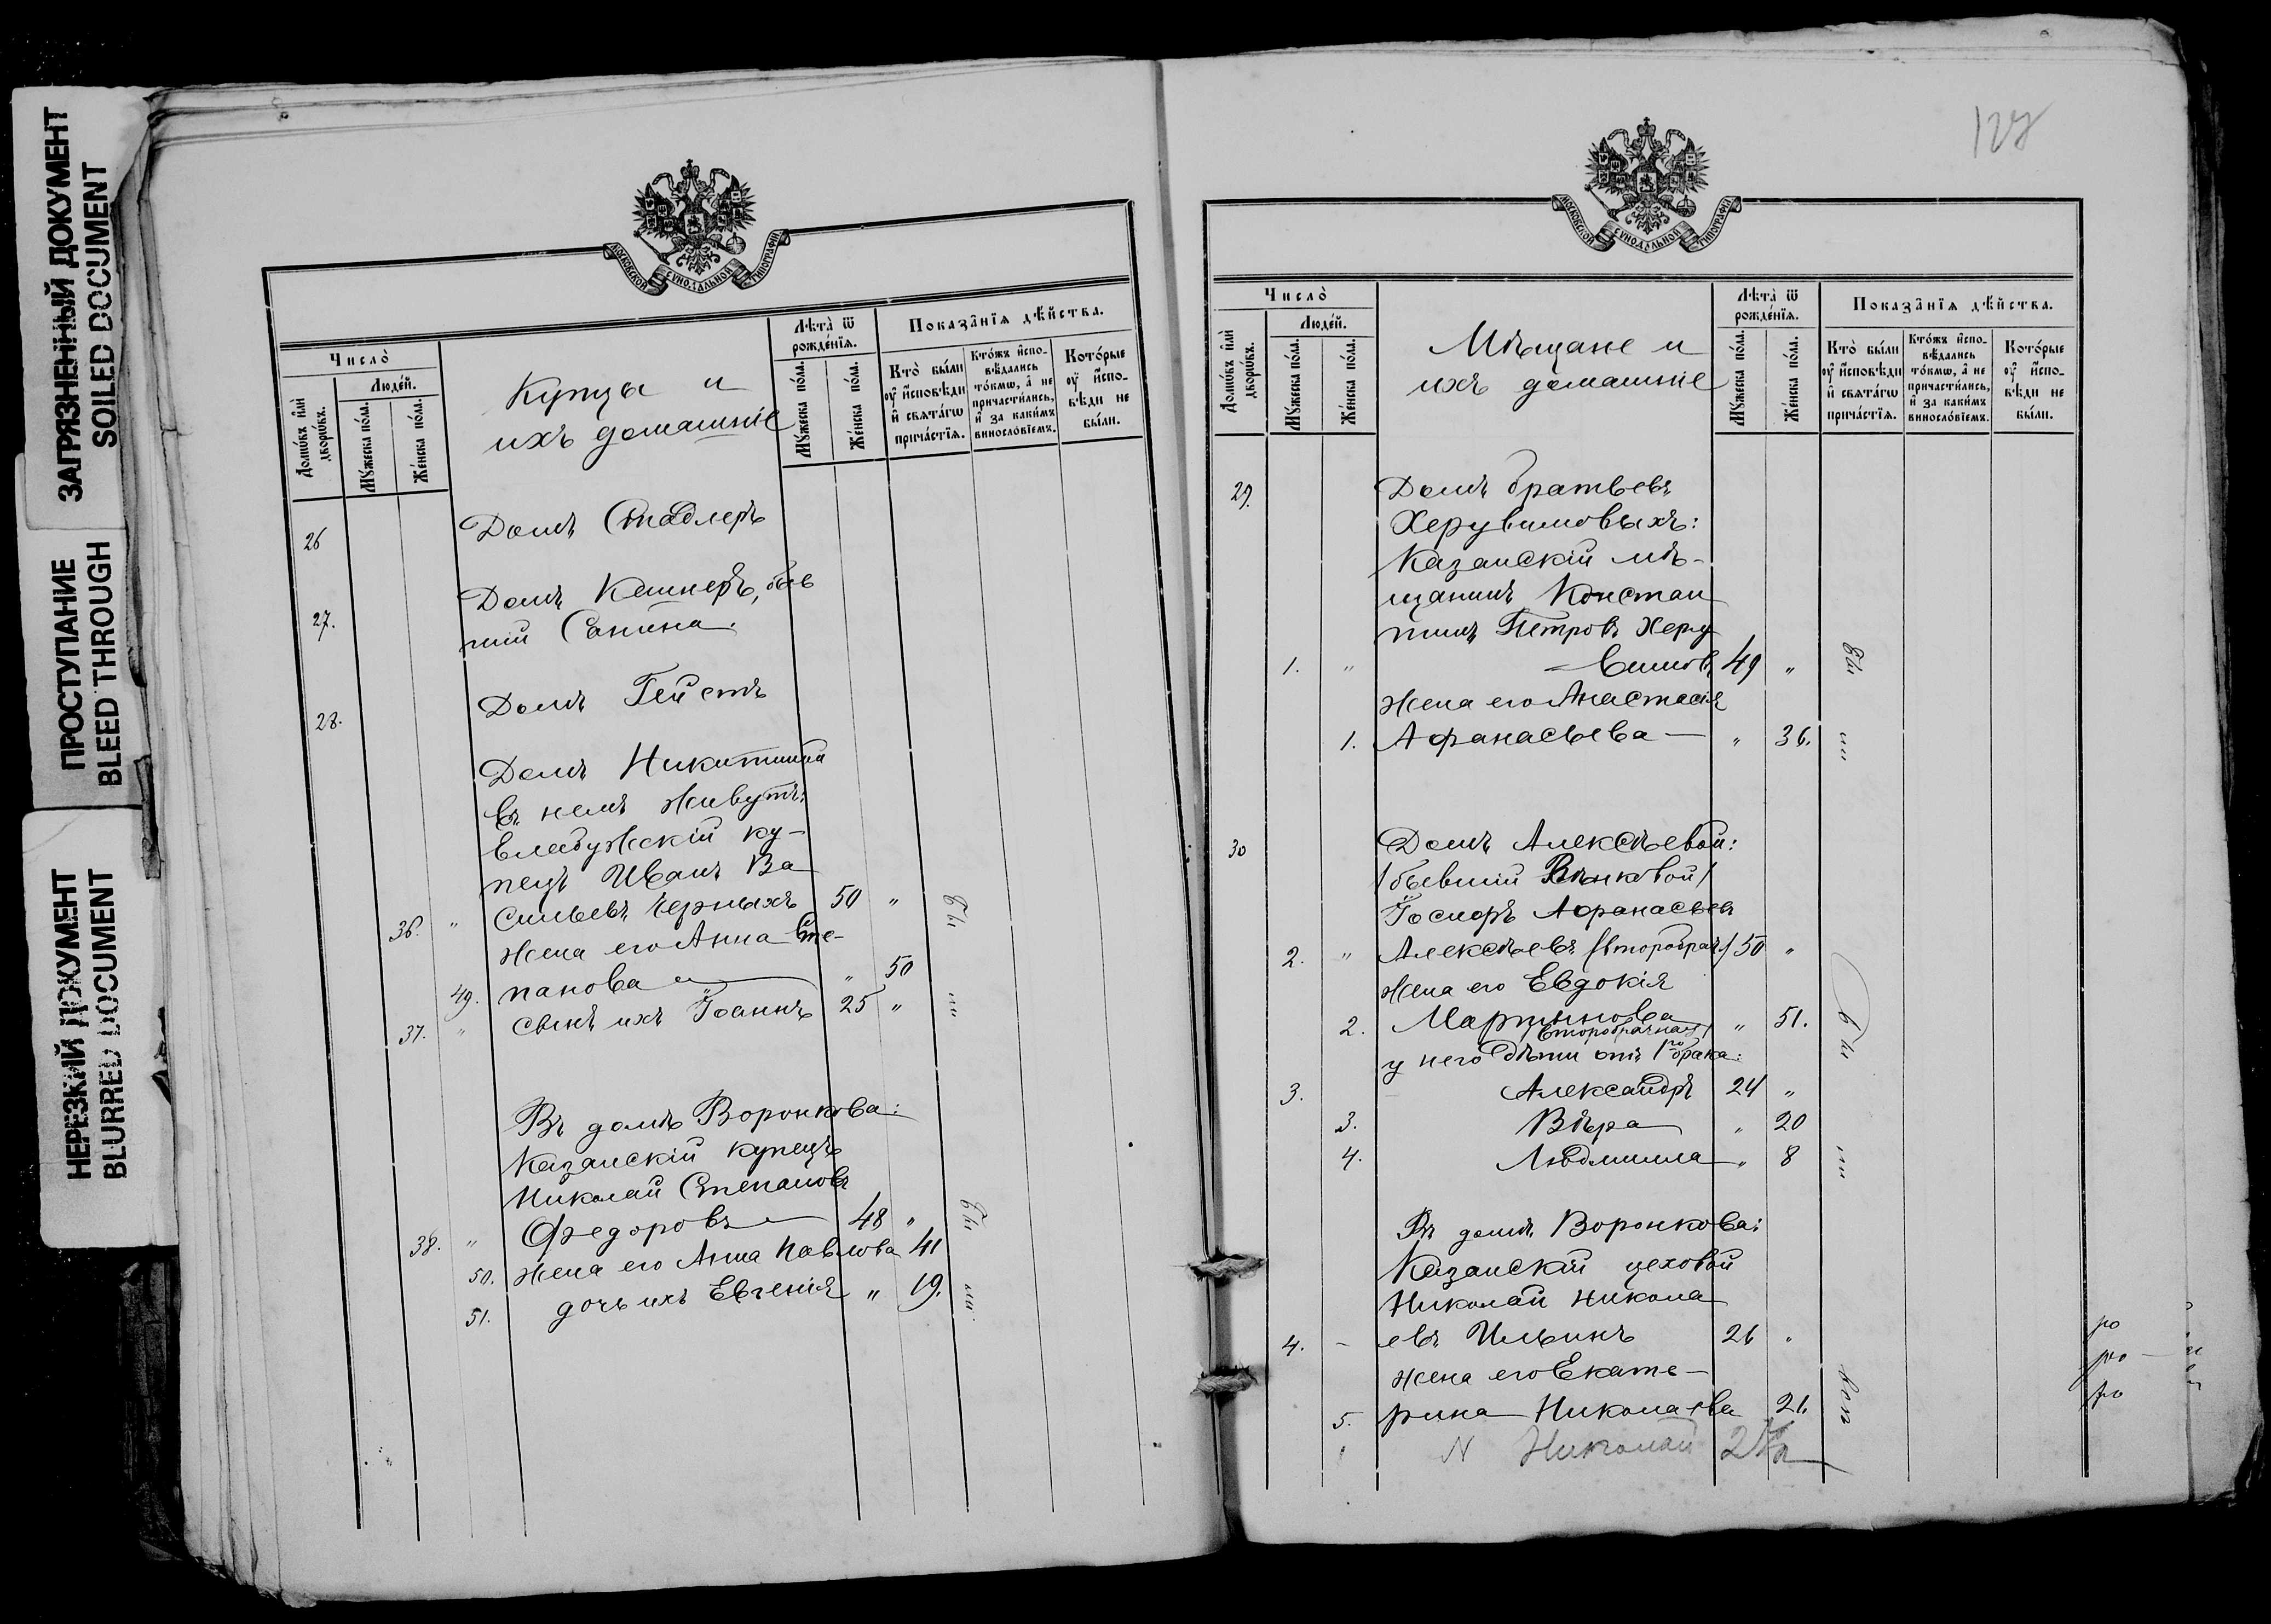 ЗАГРЯЗНЕННЫЙ ДОКУМЕНТ
SOILED DOCUMENT
ПРОСТУПАНИЕ
BLEED THROUGH
НЕРЕЗКИЙ ДОКУМЕНТ
BLURRED DOCUMENT
МОСКОВСКОЙ СѴНОДАЛЬНОЙ ТИПОГРАФІИ
Число̀
Людéй.
Домѡ́въ и҆лѝ дворѡ́въ.
Мꙋ́жеска по́ла.
Же́нска по́ла.
Купцы и
ихъ домашніе
Лѣта̀ ѿ рожде́нїѧ.
Мꙋ́жеска по́ла.
Же́нска по́ла.
Показа̂нїѧ дѣ́йства.
Кто̀ бы́ли ᲂу҆ и҆сповѣди и҆ свѧта́гѡ прича́стїѧ.
Кто́жъ и҆спо-вѣдались то́кмѡ, а҆ не причасти́лись, и҆ за каки́мъ винословїемъ.
Кото́рые ᲂу҆ и҆спо-вѣди не бы́ли.
26 Домъ Стадлеръ
27. Домъ Кешнеръ, быв
шій Санина.
28. Домъ Гейстъ
Домъ Никитина
въ немъ живутъ:
елабужскій ку-
пецъ Иванъ Ва
36. " сильевъ Черныхъ 50 " бы
жена его Анна Сте-
49. панова " 50
37. " сынъ ихъ Іоаннъ 25 " ли
Въ домѣ Воронкова:
Казанскій купецъ
Николай Степановъ
38. " Федоровъ 48 " бы
50. жена его Анна Павлова 41
51. дочь ихъ Евгенія " 19. ли
127
МОСКОВСКОЙ СѴНОДАЛЬНОЙ ТИПОГРАФІИ
Число̀
Людéй.
Домѡ́въ и҆лѝ дворѡ́въ.
Мꙋ́жеска по́ла.
Же́нска по́ла.
Мѣщане и
ихъ домашніе
Лѣта̀ ѿ рожде́нїѧ.
Мꙋ́жеска по́ла.
Же́нска по́ла.
Показа̂нїѧ дѣ́йства.
Кто̀ бы́ли ᲂу҆ и҆сповѣди и҆ свѧта́гѡ прича́стїѧ.
Кто́жъ и҆спо-вѣдались то́кмѡ, а҆ не причасти́лись, и҆ за каки́мъ винословїемъ.
Кото́рые ᲂу҆ и҆спо-вѣди не бы́ли.
29. Домъ братьевъ
Херувимовыхъ:
Казанскій мѣ-
щанинъ Констан
тинъ Петровъ Херу
1. " - вимовъ 49 " бы
жена его Анастасія
1. Афанасьева - " 36. ли
30 Домъ Алексѣевой:
/бывшій Внъковой/
Іосифъ Афанасьев
2. " Алексѣевъ /второбрач/ 50 "
жена его Евдокія
2. Мартинова " 51. бы
второбрачная/
у него дѣти отъ 1го брака:
3. Александръ 24 "
3. Вѣра " 20
4. Людмила " 8 ли
Въ домѣ Воронкова:
Казанскій цеховой
Николай Никола
4. - евъ Ильинъ 26 "
жена его Екате-
5. рина Николаева 21.
N Николай